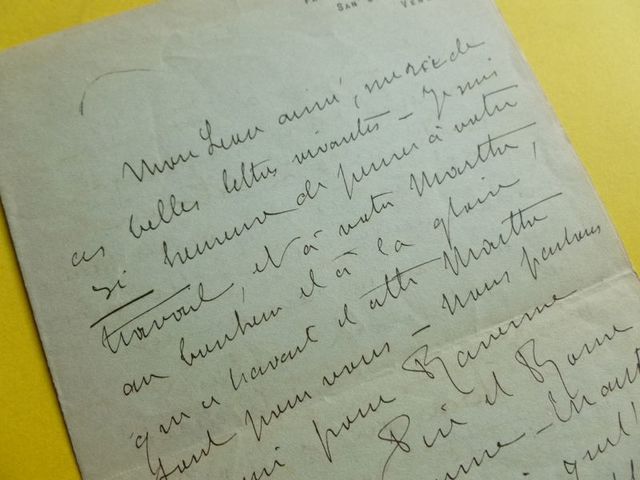 SAN
VEN
Mon Leon aimé, merci de
ces belles lettres vivantes - Je suis
si heureuse de penser à votre
travail, et à votre Marthe,
au bonheur et à la gloire
qu'à travail et cette Marthe
font pour vous - Nous partons
pour Ravenne
et Rome